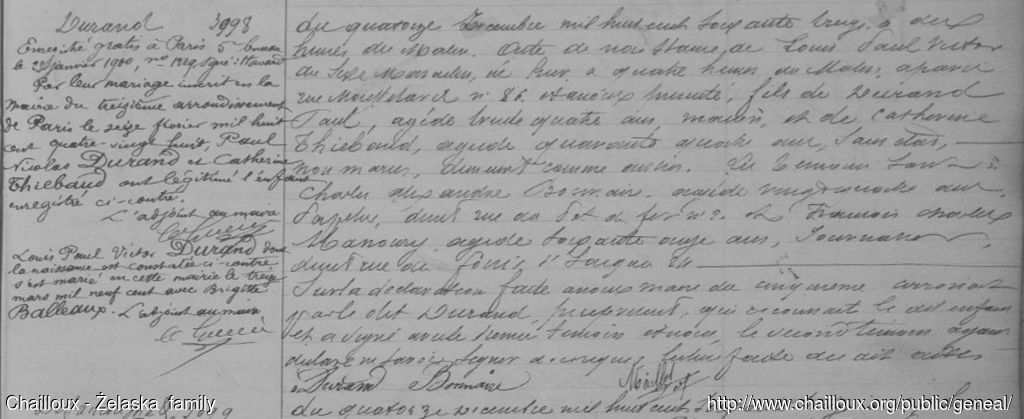 Durand 3998
gratis à Paris 5e
le 23 janvier 1900, no 1329, Signé: Havard
Par leur mariage inscrit en la
mairie du treizième arrondissement
de Paris le seize février mil huit
cent quatre-vingt huit, Paul
Nicolas Durand et Catherine
Thiebaud ont légitimé l'enfant
enregistré ci-contre.
L'adjoint au maire
Louis Paul Victor Durand dont
la naissance est constatée ci-contre
s'est marié en cette mairie le treize
mars mil neuf cent avec Brigitte
Balleaux. L'adjoint au maire
du quatorze Décembre mil huit cent soixante treize, à dix
heures du Matin. Acte de naissance, de Louis Paul Victor
du Sexe Masculin, né hier, à quatre heures du Matin, à Paris
rue Mouffetard no 86. et à nous présenté, fils de Durand
Paul, agé de trente quatre ans, maçon, et de Catherine
Thiebaud, agée de quarante ans, Sans état,
non mariés, demeurant comme Les témoins sont:
Charles Alexandre Bonnaire, agé de vingt ans
Papetier, demt rue du Pot de fer no 2. et François Charles
Manoury, agé de soixante onze ans, Journalier,
demt rue de
Sur la déclaration faite à nous maire du cinquième arrondt
par le dit Durand, présent, qui reconnait le dit enfant
et a signé avec le premier témoin et nous, le second témoin ayant
déclaré ne savoir signer à ce requis, lecture faite du dit acte
Durand Bonnaire
du quatorze Décembre mil huit cent
Chailloux - Żelaska family
http://www.chailloux.org/public/geneal/